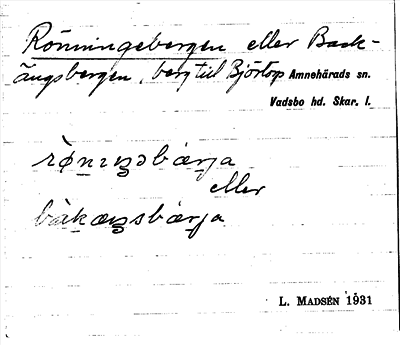 Rönningebergen eller Back-
ängsbergen, berg till Björtorp Amnehärads sn.
Vadsbo hd. Skar. l.
rǿnɪŋəbærja
eller
bàkæŋsbærja
L. MADSÉN 1931